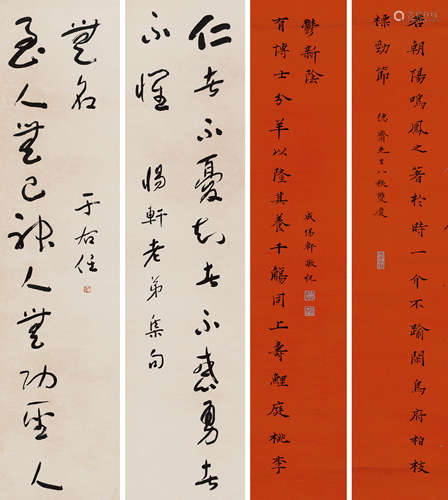 若朝陽鳴鳳之著於時一介不踰閑烏府柏枝
勁節
齋先生八秩雙慶
有博士分羊以隆其養千觴同上壽鯉庭桃李
鬱新陰
成惕軒敬祝
仁者不憂知者不惑勇者
不懼
惕軒老弟集句
至人無己神人無功聖人
無名
于右任